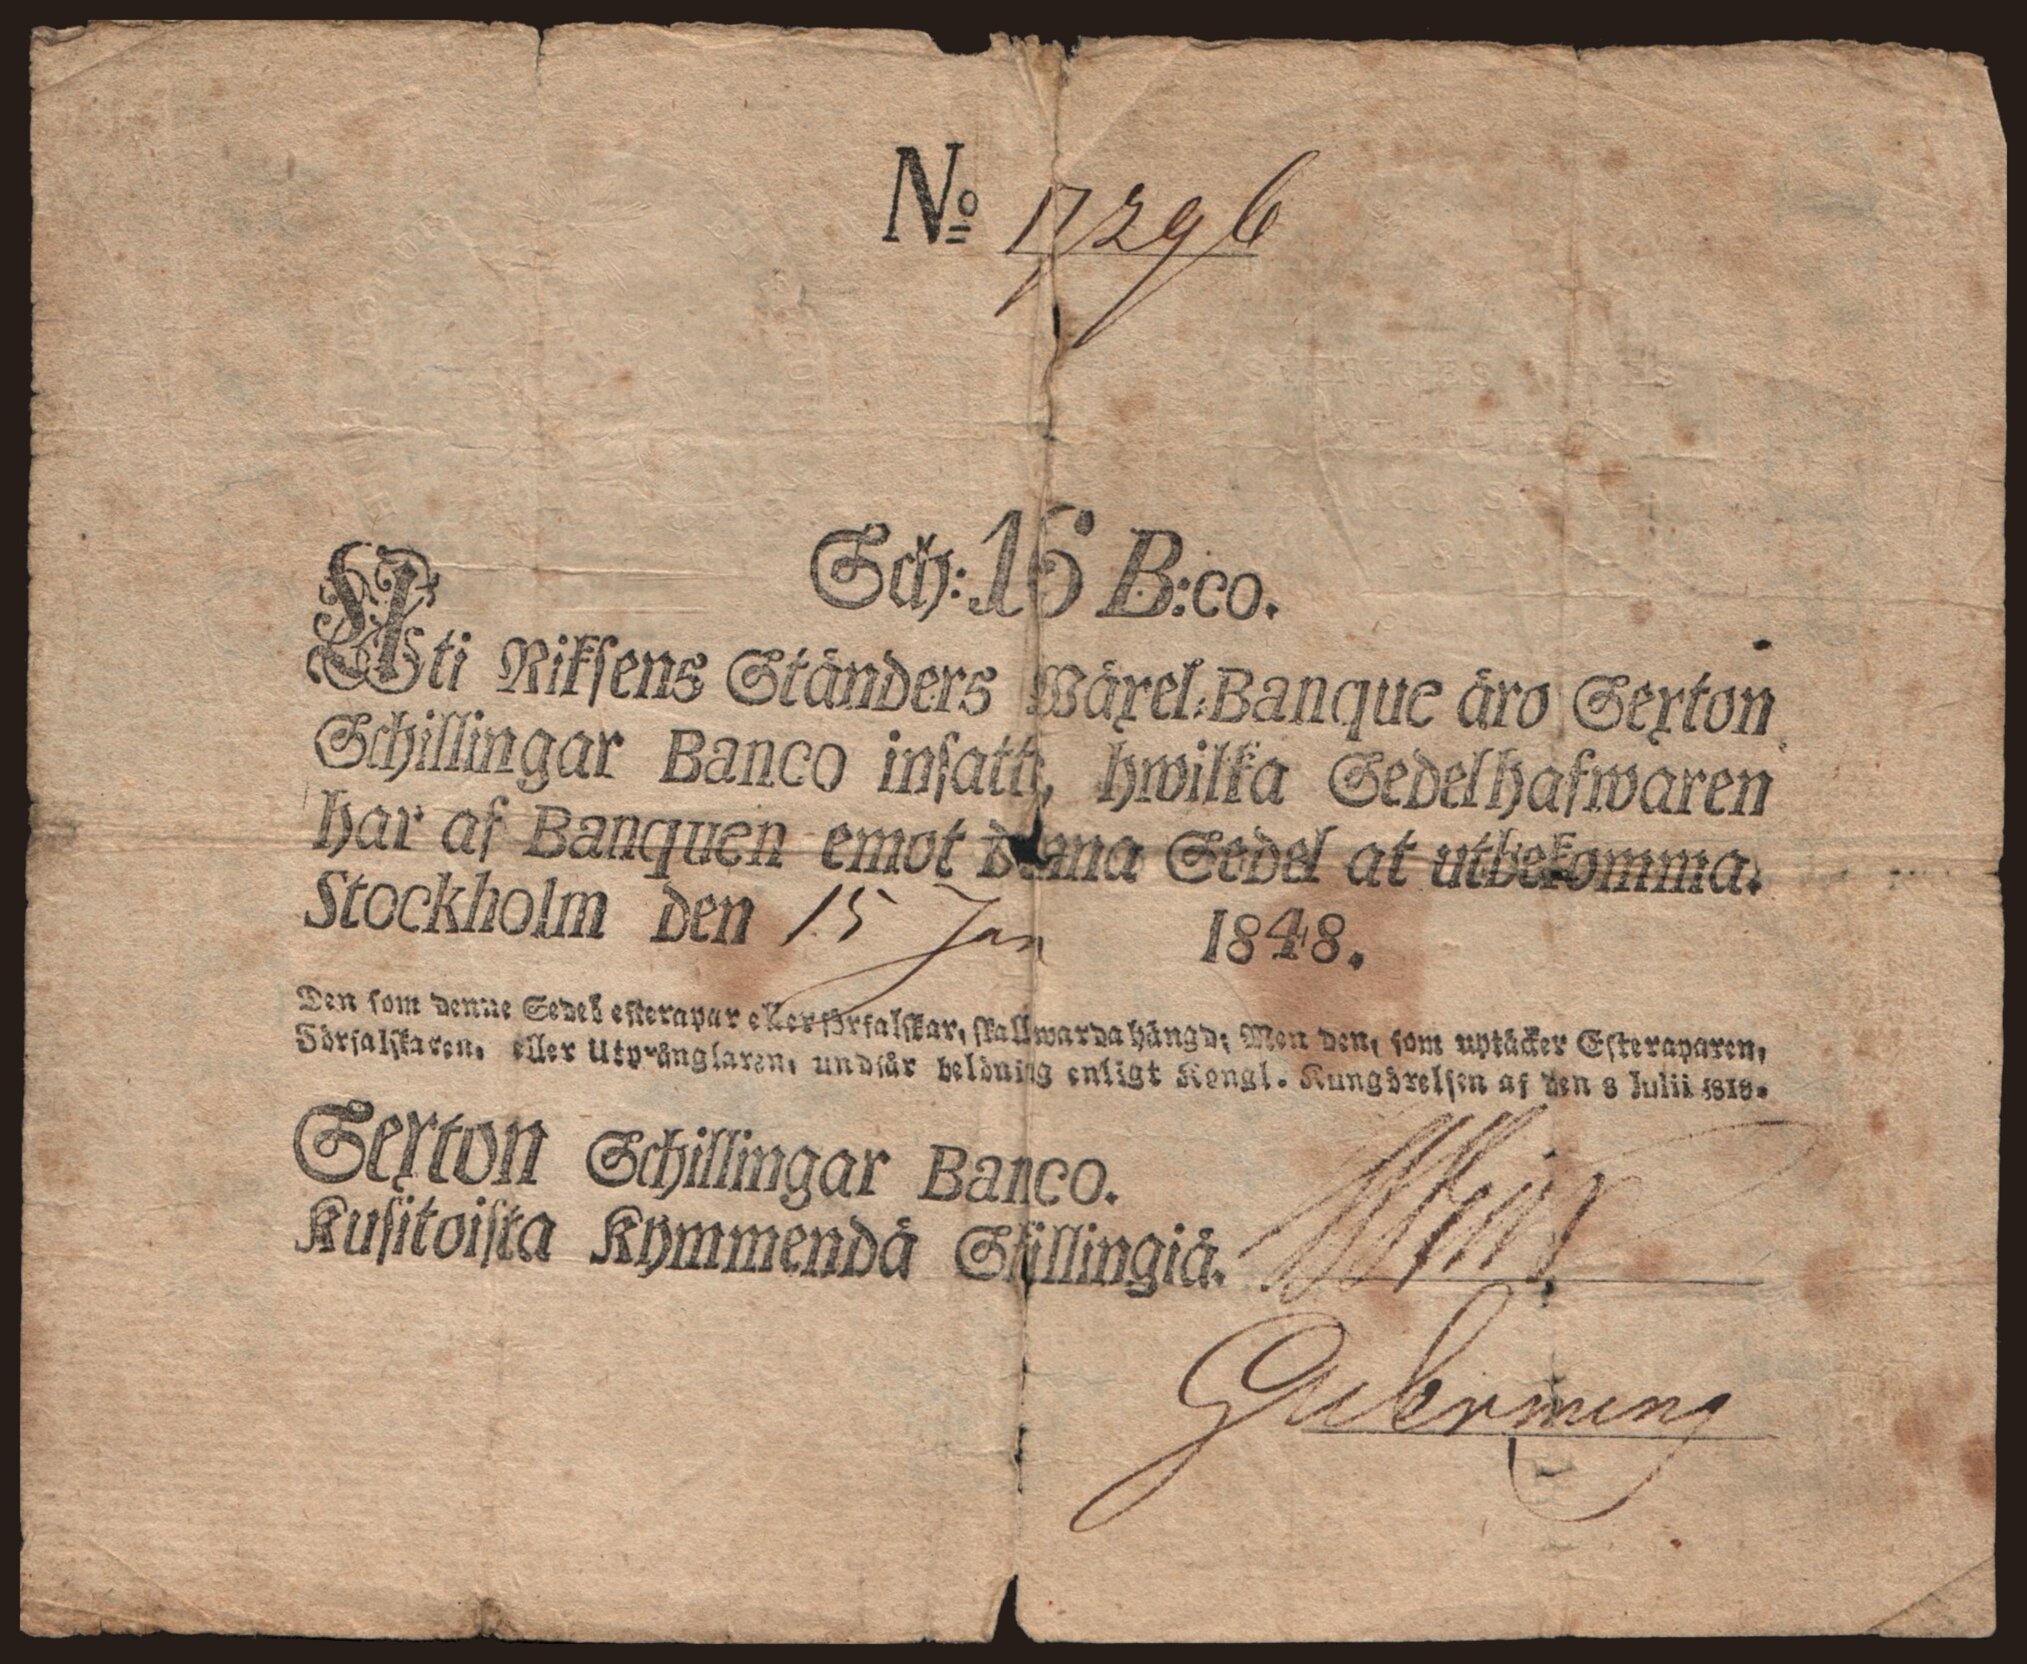 No 17296
Sch: 16 B:co.
Uti Riksens Ständers Wäxel-Banque äro Sexton
Schillingar Banco insatte, hwilka Sedelhafwaren
har af Banquen emot denna Sedel at utbekomma.
Stockholm den 15 Jan 1848.
Den som denne Sedel efterapar eller förfalskar, skall warda hängd; Men den, som uptäcker Efteraparen,
Förfalskaren, eller Utprånglaren, undfår belöning enligt Kongl. Kungörelsen af den 8 Julii 1818.
Sexton Schillingar Banco.
Kusitoista Kymmendä Skillingiä.